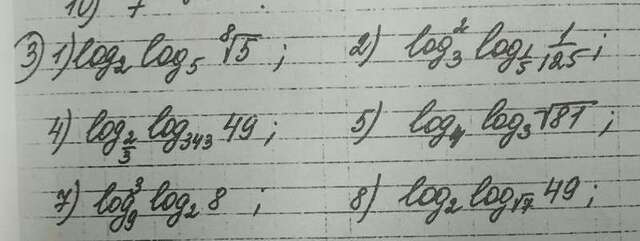 10) 7
③ 1) log₂ log₅ ⁸√5 ; 2) log₃² log_{1/5} 1/125 ;
4) log_{2/3} log₃₄₃ 49 ; 5) log₄ log₃ √81 ;
7) log₉³ log₂ 8 ; 8) log₂ log_{√7} 49 ;